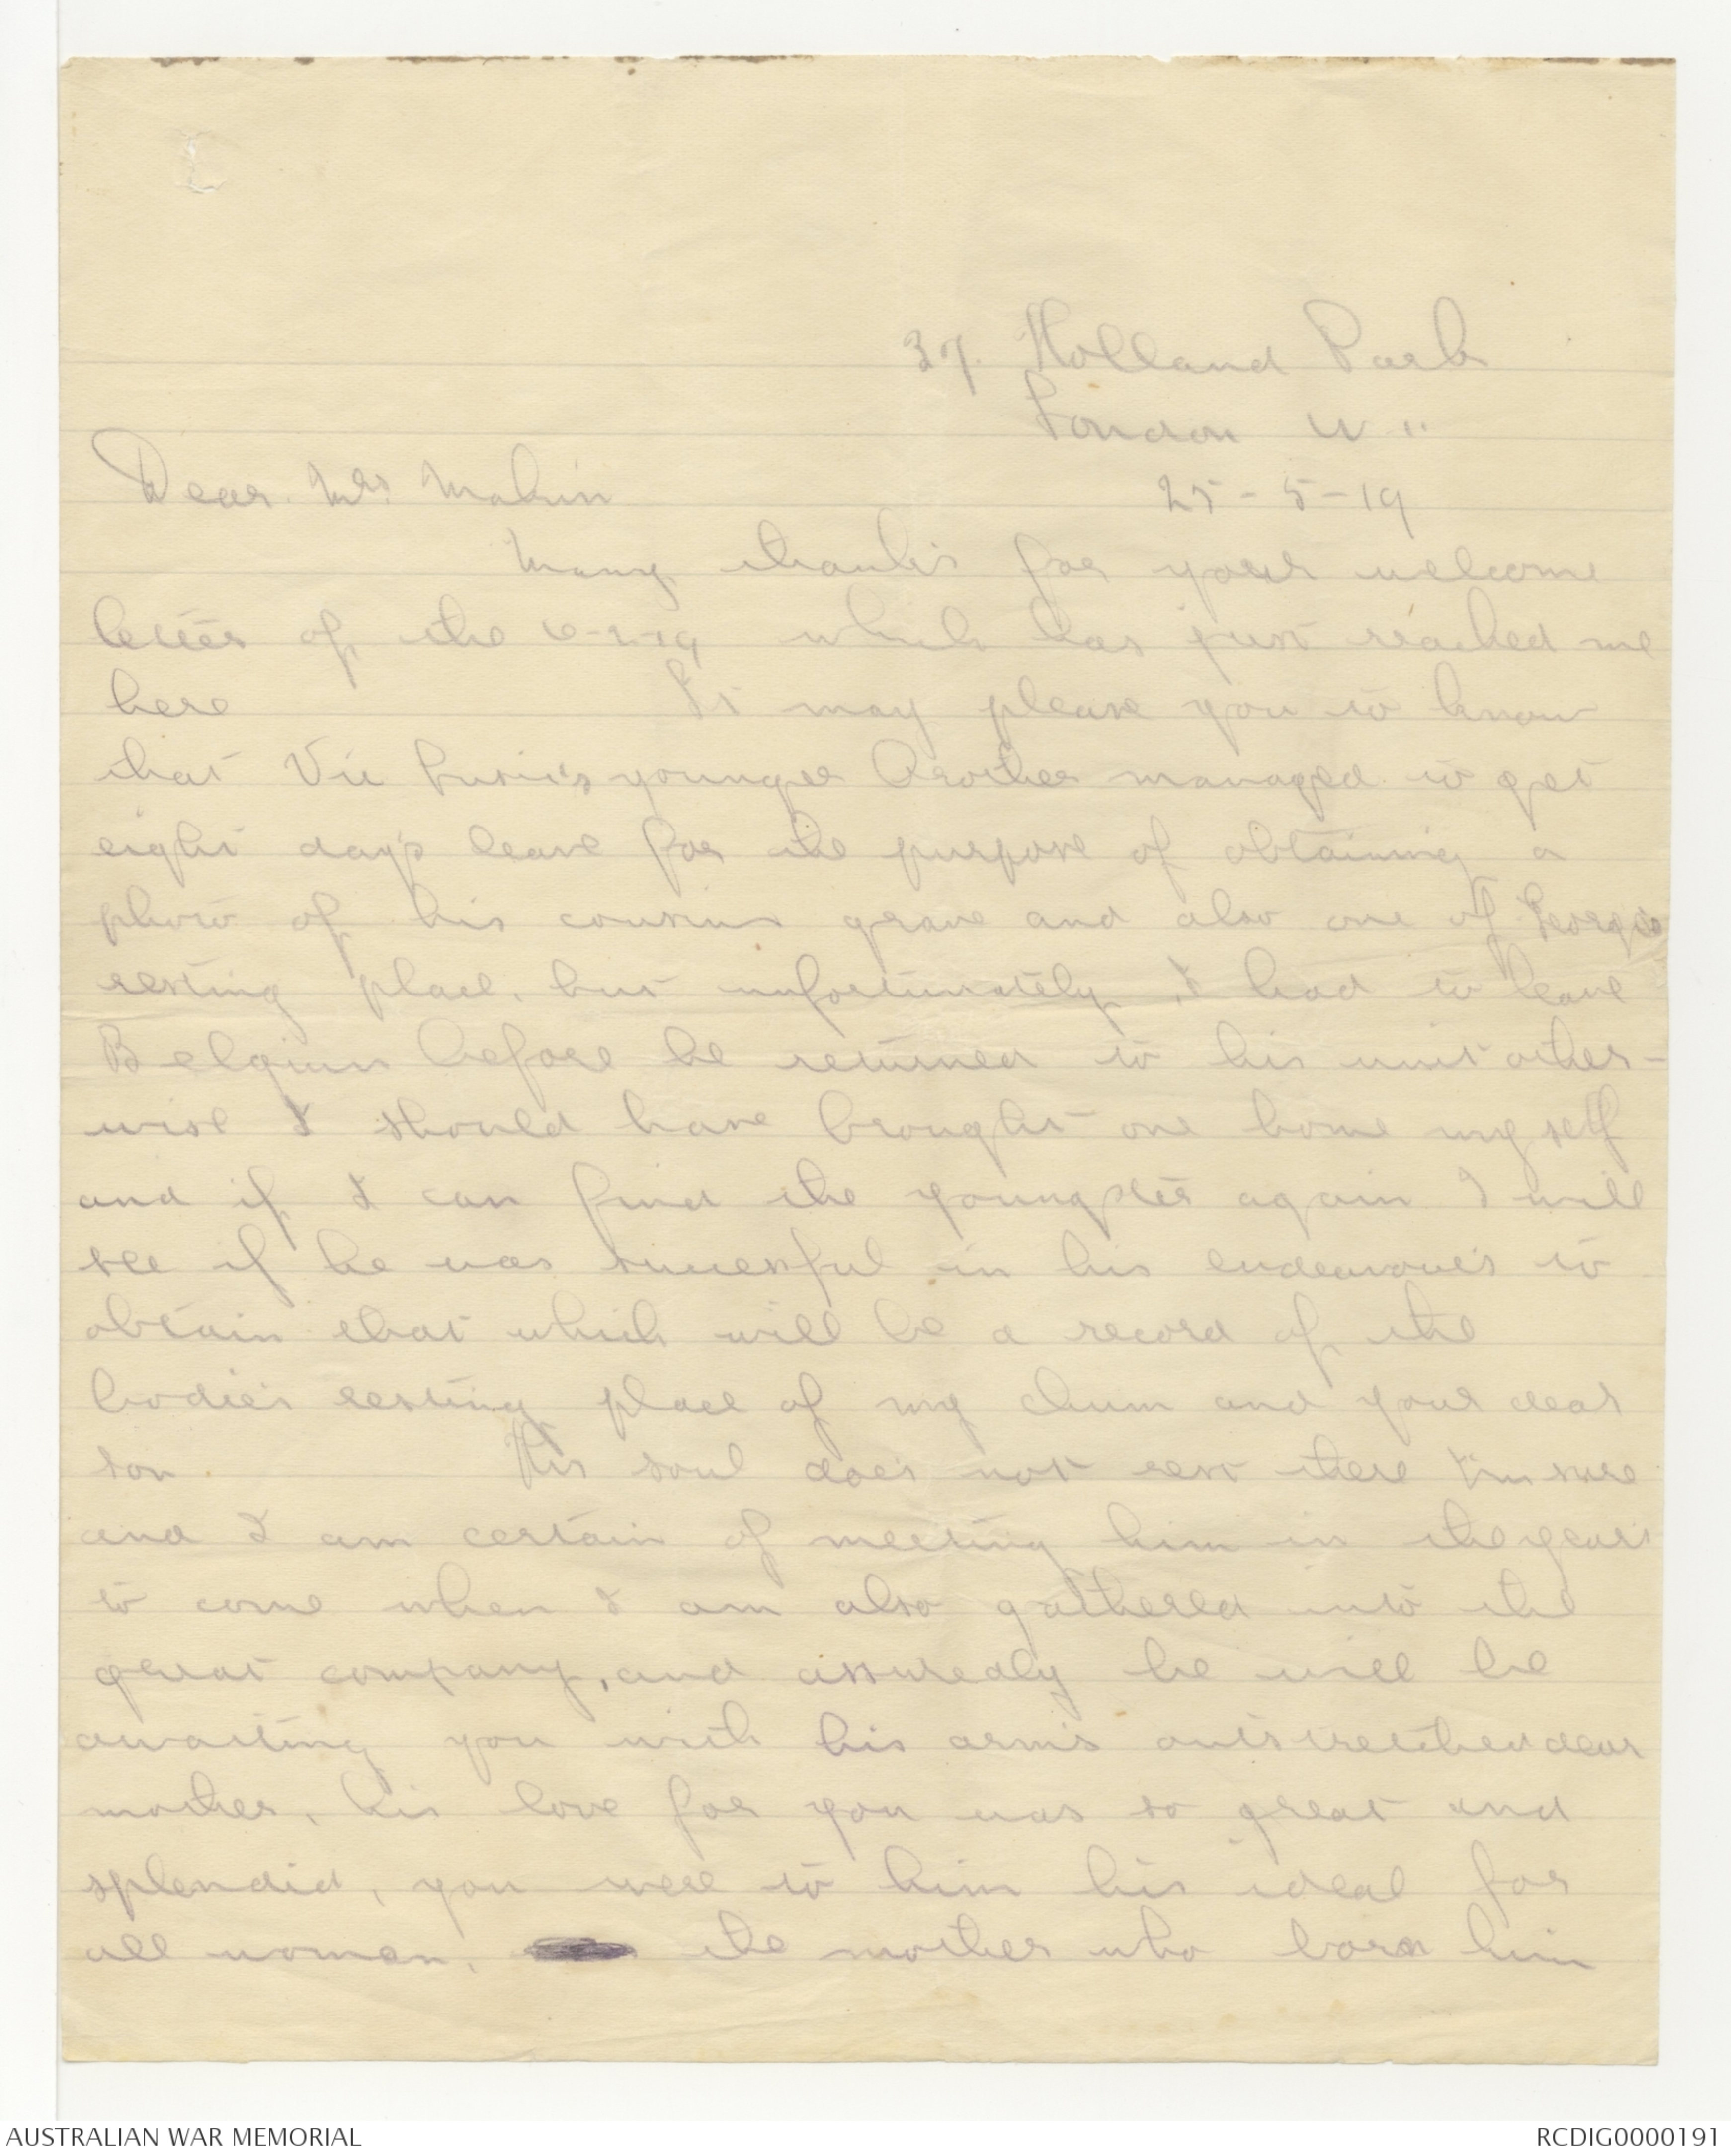 37. Holland Park
London W 11
Dear. Mrs. Makin
25-5-19
Many thanks for your welcome
letter of the 6-2-19 which has just reached me
here It may please you to know
that Vic younger brother managed to get
eight days leave for the purpose of obtaining a
photo of his cousins grave and also one of George's
resting place, but unfortunately, I had to leave
Belgium before he returned to his unit other-
wise I should have brought one home myself
and if I can find the youngster again I will
see if he was successful in his endeavours to
obtain that which will be a record of the
bodies resting place of my chum and your dear
son. His soul does not rest there I'm sure
and I am certain of meeting him in the years
to come when I am also gathered into the
great company, and assuredly he will be
awaiting you with his arms outstretched dear
mother, his love for you was so great and
splendid, you were to him his ideal for
all women, the mother who bore him
AUSTRALIAN WAR MEMORIAL
RCDIG0000191